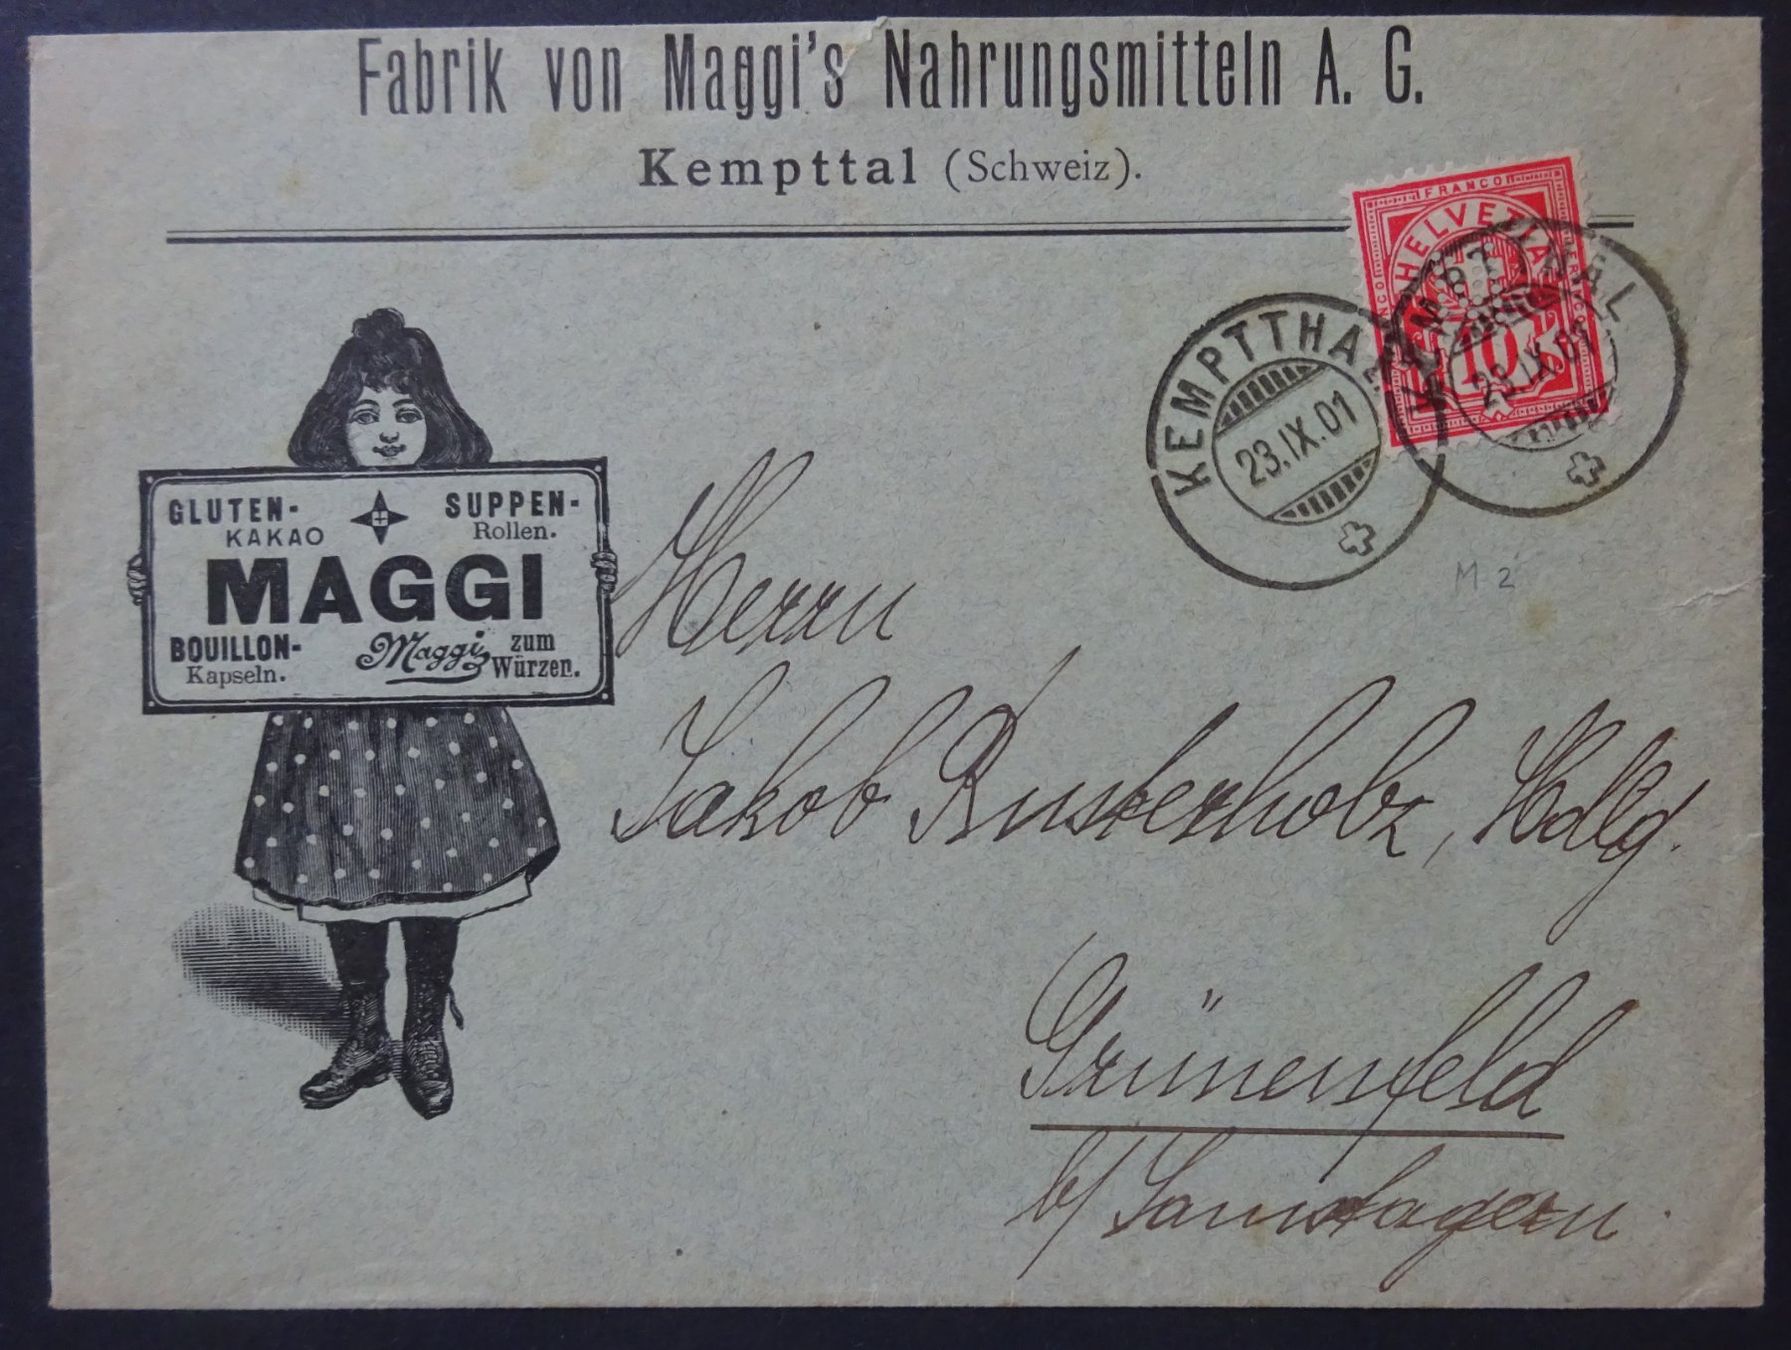 Fabrik von Maggi's Nahrungsmitteln A. G.
Kempttal (Schweiz).
FRANCO
HELVETIA
10
KEMPTTHAL
23.IX.01
KEMPTTHAL
23.IX.01
M 2
GLUTEN-
KAKAO
SUPPEN-
Rollen.
MAGGI
BOUILLON-
Kapseln.
Maggi zum
Würzen.
Herrn
Jakob Rusterholz, Hdlg.
Grünenfeld
b/ Samstagern.